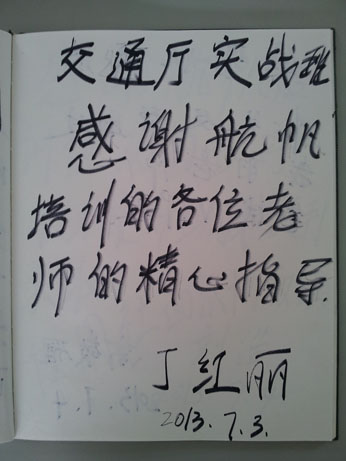 交通厅实战班
感谢航帆
培训的各位老
师的精心指导.
丁红丽
2013.7.3.